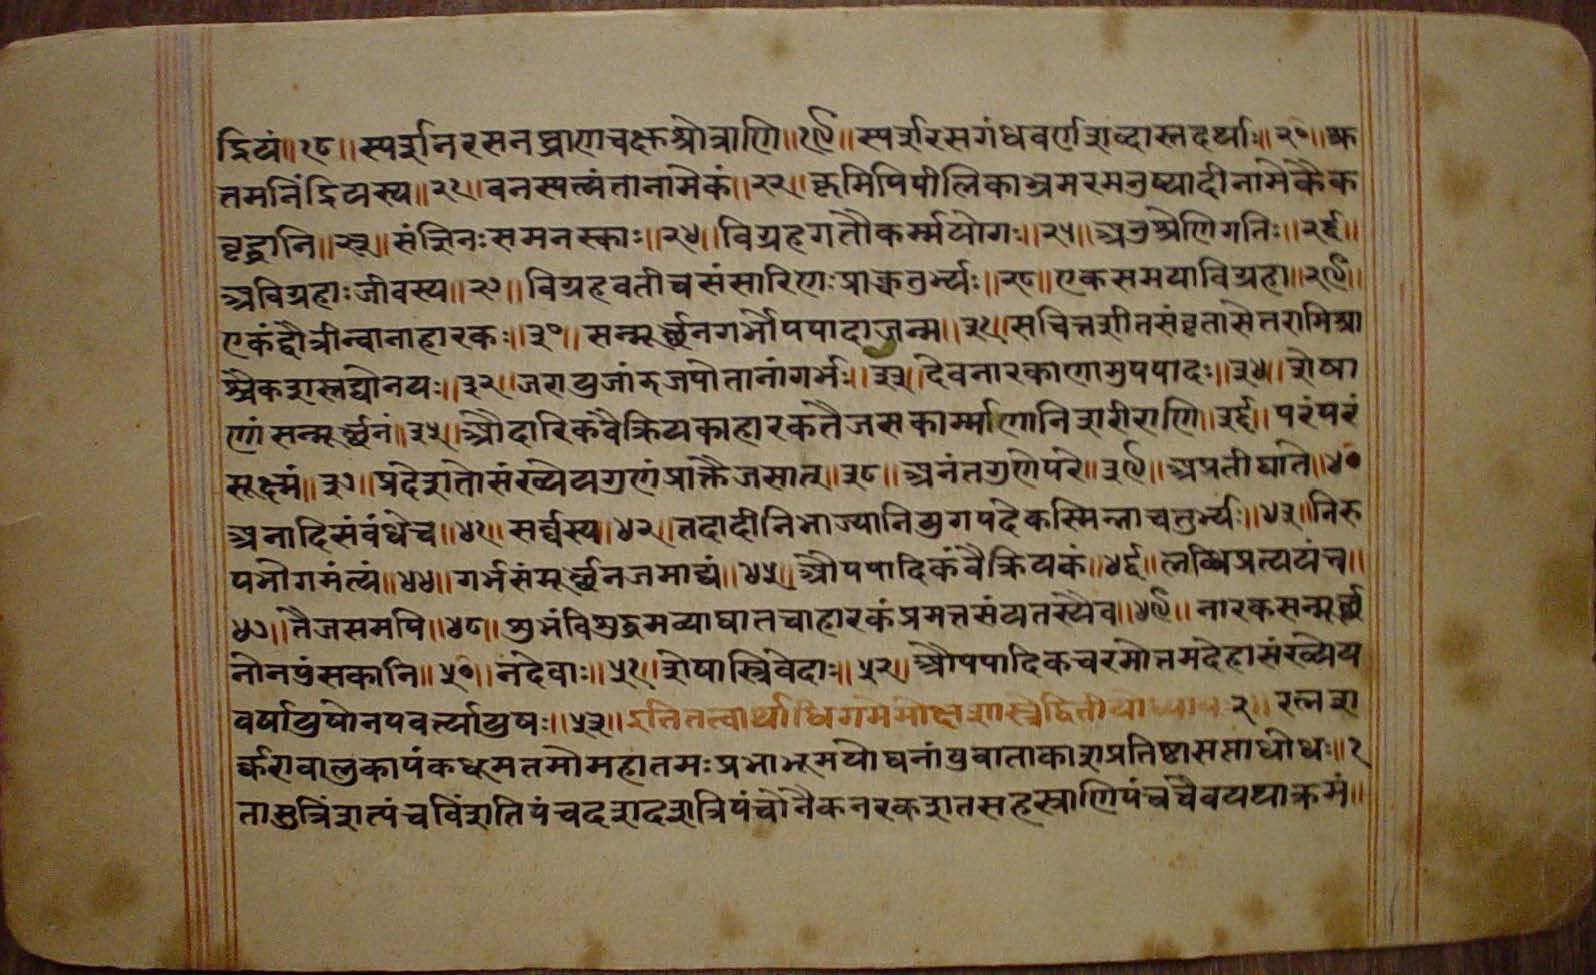 द्रियं॥१८॥स्पर्शनरसनघ्राणचक्षःश्रोत्राणि॥१९॥स्पर्शरसगंधवर्णशब्दास्तदर्थाः॥२०॥श्रु
तमनिंद्रियस्य॥२१॥वनस्पत्यंतानामेकं॥२२॥कृमिपिपीलिकाभ्रमरमनुष्यादीनामेकैक
वृद्धानि॥२३॥संज्ञिनःसमनस्काः॥२४॥विग्रहगतौकर्म्मयोगः॥२५॥अनुश्रेणिगतिः॥२६॥
अविग्रहाःजीवस्य॥२७॥विग्रहवतीचसंसारिणःप्राक्चतुर्भ्यः॥२८॥एकसमयाविग्रहा॥२९॥
एकंद्वौत्रीन्वानाहारकः॥३०॥सन्मूर्च्छनगर्भोपपादाजन्म॥३१॥सचित्तशीतसंवृतासेतरामिश्रा
श्चैकशस्तद्योनयः॥३२॥जरायुजांडजपोतानांगर्भः॥३३॥देवनारकाणामुपपादः॥३४॥शेषा
णांसन्मूर्च्छनं॥३५॥औदारिकंवैक्रियकाहारकतैजसकार्म्माणानिशरीराणि॥३६॥परंपरं
सूक्ष्मं॥३७॥प्रदेशतोसंख्येयगुणंप्राक्तैजसात्॥३८॥अनंतगुणेपरे॥३९॥अप्रतीघाते॥४०
अनादिसंबंधेच॥४१॥सर्व्वस्य॥४२॥तदादीनिभाज्यानियुगपदेकस्मिन्नाचतुर्भ्यः॥४३॥निरु
पभोगमंत्यं॥४४॥गर्भसंमूर्च्छनजमाद्यं॥४५॥औपपादिकंवैक्रियकं॥४६॥लब्धिप्रत्ययंच॥
४७॥तैजसमपि॥४८॥शुभंविशुद्धमव्याघातचाहारकंप्रमत्तसंयतस्यैव॥४९॥नारकसन्मूर्च्छ
नोनपुंसकानि॥५०॥नदेवाः॥५१॥शेषास्त्रिवेदाः॥५२॥औपपादिकचरमोत्तमदेहासंख्येय
वर्षायुषोनपवर्त्यायुषः॥५३॥इतितत्वार्थाधिगमेमोक्षशास्त्रेद्वितीयोध्यायः२॥रत्नश
र्करावालुकापंकधूमतमोमहातमःप्रभाभूमयोघनांबुवाताकाशप्रतिष्टासप्ताधोधः॥१
तासुत्रिंशत्पंचविंशतिपंचदशदशत्रिपंचोनैकनरकशतसहस्राणिपंचचैवयथाक्रमं॥